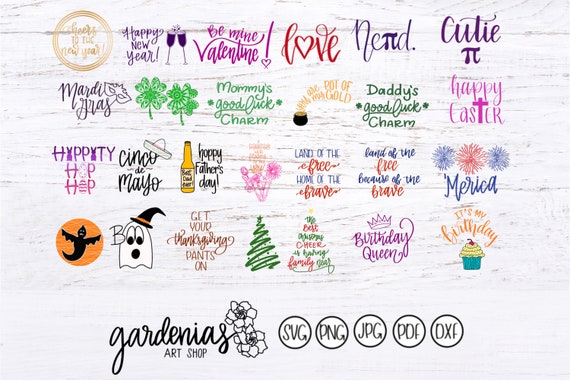 cheers
to the
new year!
Happy
New
Year!
Be mine
Valentine!
love
Nerd.
Cutie
π
Mardi
Gras
Mommy's
good luck
Charm
you are my pot of
GOLD
Daddy's
good luck
Charm
happy
Easter
Hippity
Hop
Hop
cinco
de
mayo
Best
Dad
ever!
hoppy
Father's
day!
Land of the
free
Home of the
brave
Land of the
free
because of the
brave
'Merica
Boo
Get
your
thanksgiving
pants
on
the
best
way to spread
cheer
is having
family near
Birthday
Queen
it's my
birthday
gardenias
ART SHOP
SVG
PNG
JPG
PDF
DXF